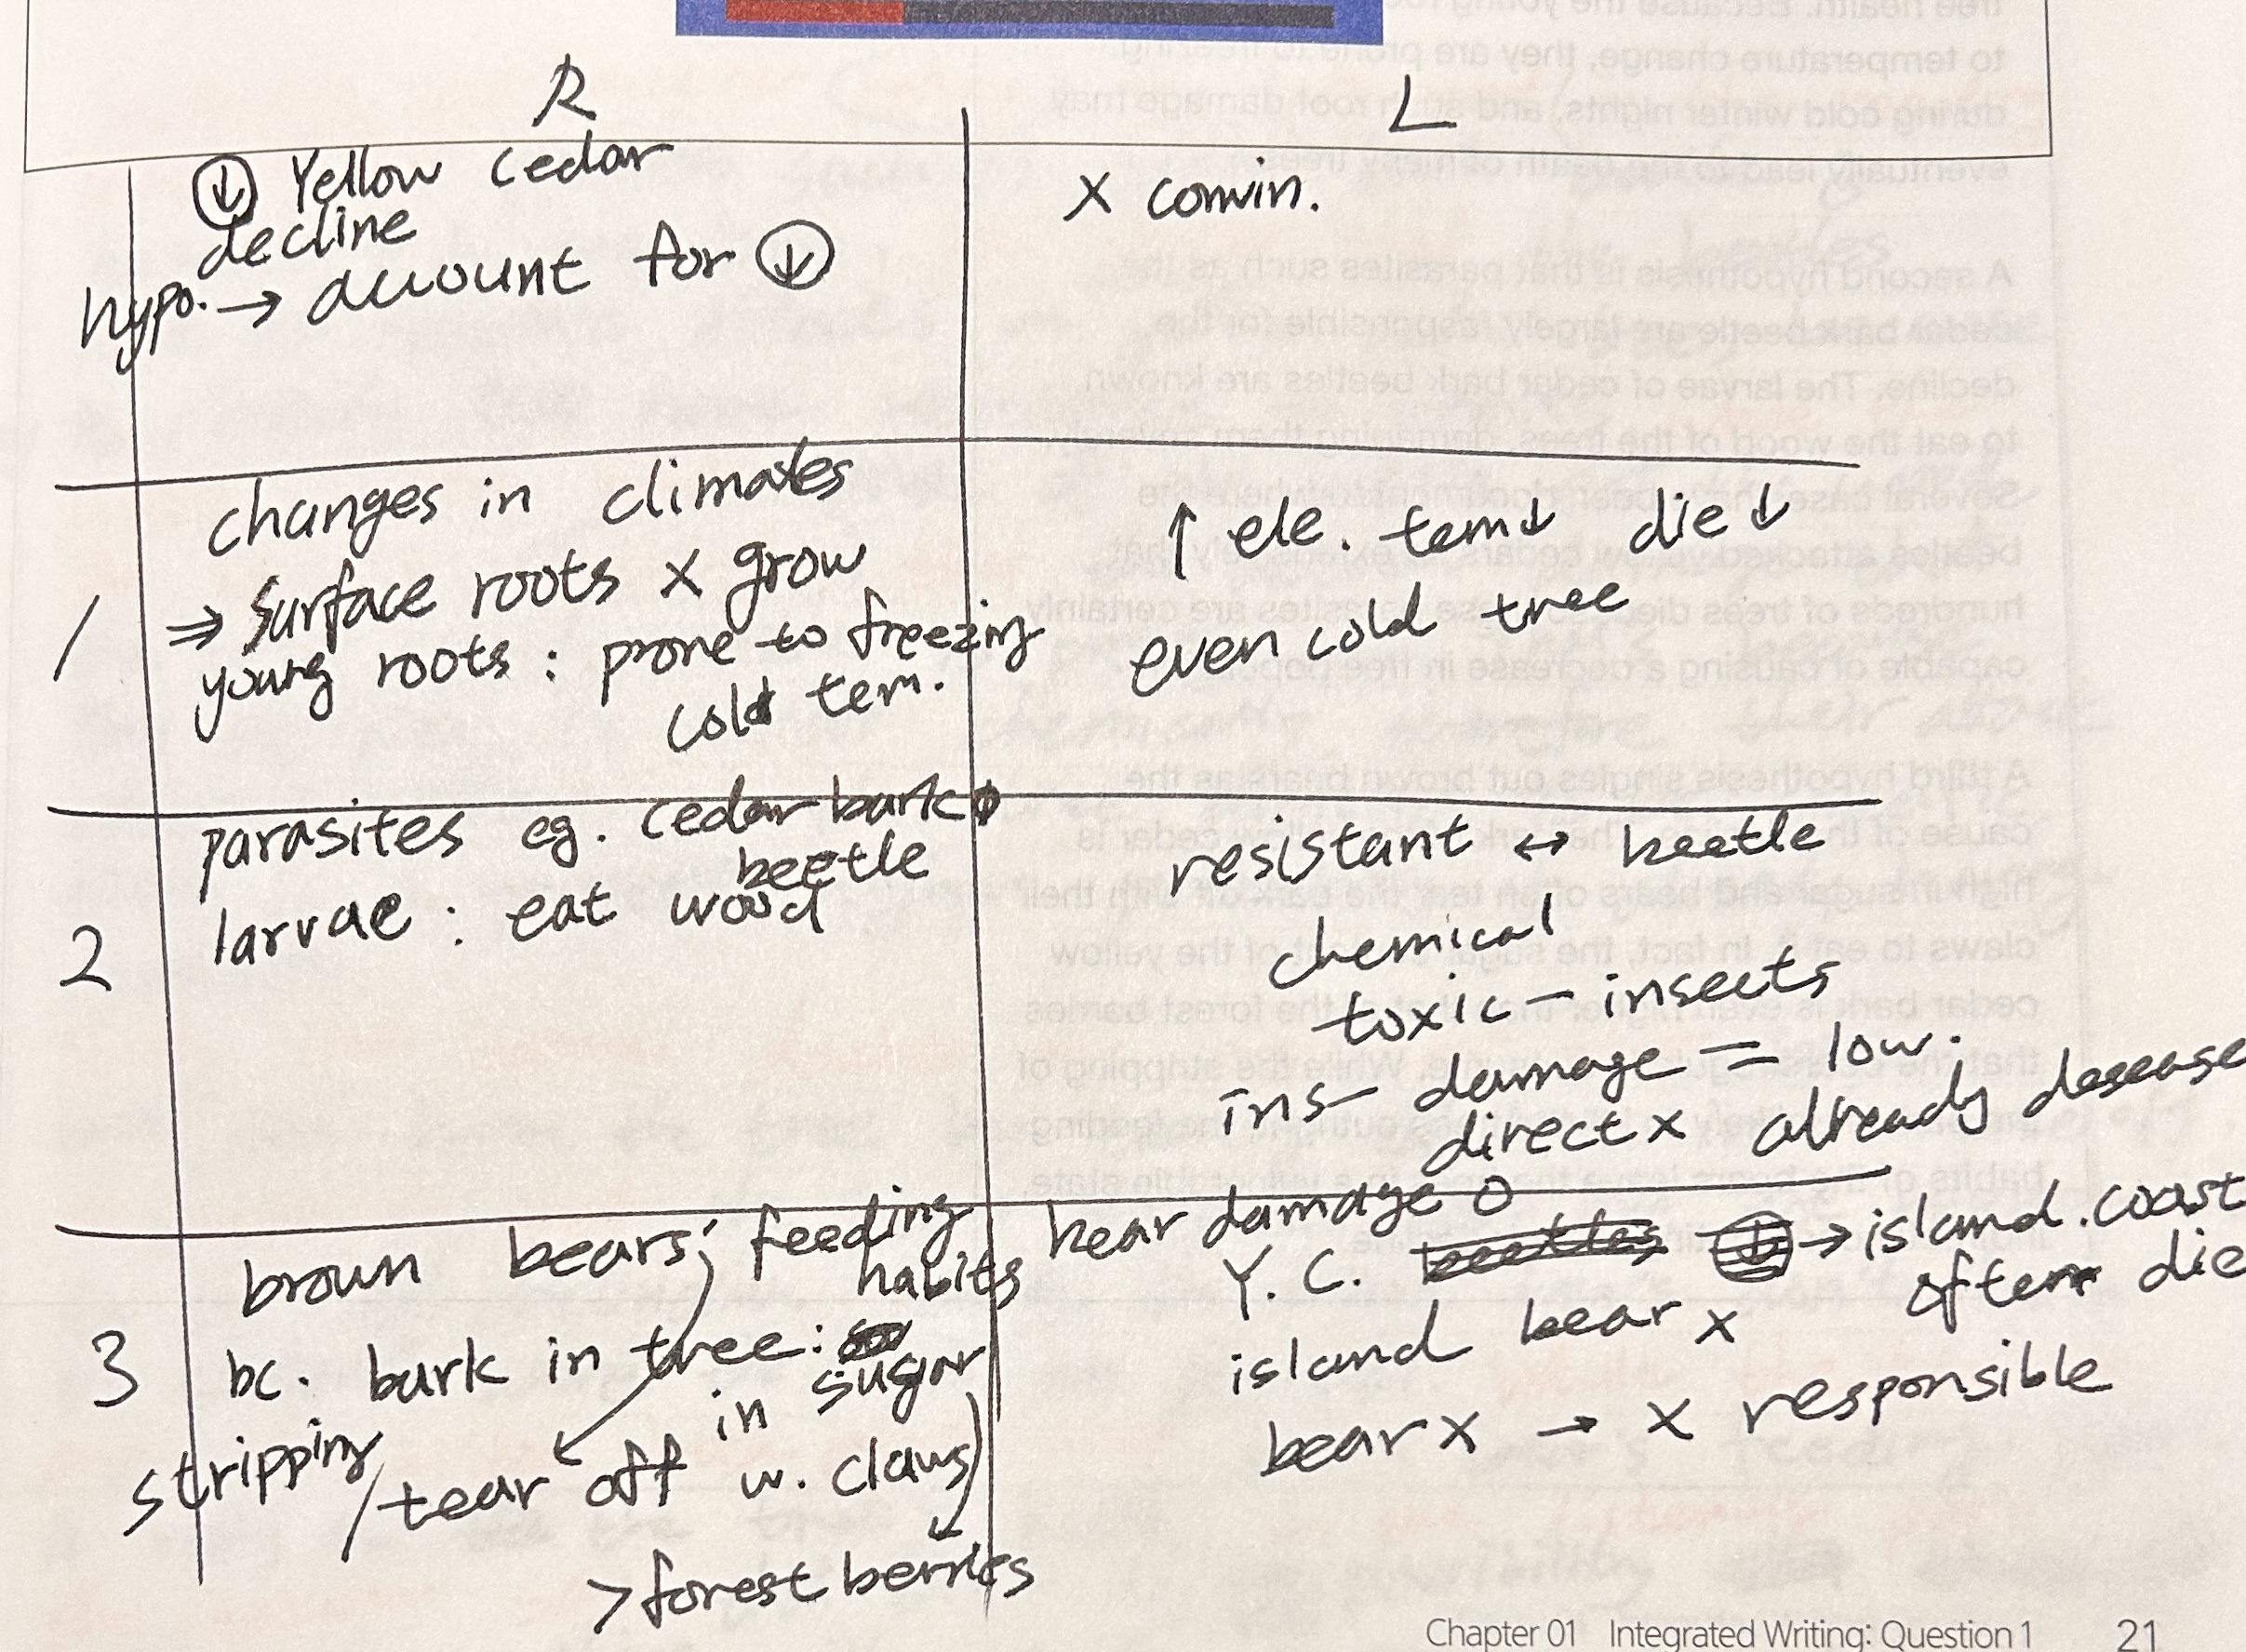 R
L
↓ Yellow cedar
decline
hypo. → account for ↓
X convin.
1
changes in climates
⇒ Surface roots X grow
young roots : prone to freezing
cold tem.
↑ ele. tem↓ die↓
even cold tree
2
parasites eg. cedar bark
beetle
larvae : eat wood
resistant ↔ beetle
chemical
toxic - insects
ins- damage = low.
direct x already desease
3
brown bears; feeding
habits
bc. bark in tree:
in sugar
stripping
/tear off w. claws
> forest berries
bear damage O
Y. C. → island. coast
often die
island bear x
bear x → x responsible
Chapter 01 Integrated Writing: Question 1 21